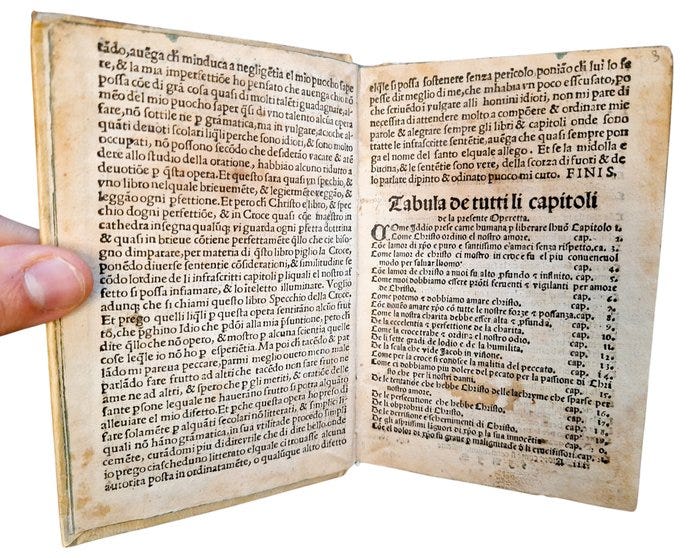 tādo, auēga ch̄ minduca a negligētia el mio puocho sape
re, & la mia imperfettiōe ho pensato che auenga chio nō
possa cōe di grā cosa quasi di molti talēti guadagnare, al-
mēo del mio puocho saper q̄si di vno talento alcūa opera
fare, nō sottile ne p grāmatica, ma in vulgare, acioche al-
quāti deuoti scolari liq̄li perche sono idioti, & sono molto
occupati, nō possono secōdo che desiderāo vacare & atē
dere allo studio della oratione, habbiāo alcuno riduto a
deuotiōe p q̄sta opera. Et questo sara quasi vn spechio, &
vno libro nelquale brieuemēte, & legiermēte reggāo, &
leggāo ogni pfettione. Et pero ch̄ Christo e libro, & spe
chio dogni perfettiōe, & in Croce quasi cōe maestro in
cathedra insegna qualūq; vi guarda ogni pfetta dottrina
& quasi in brieue cōtiene perfettamēte q̄llo che cie biso-
gno dimparate, per materia di q̄sto libro piglio la Croce,
ponēdo diuerse sententie cōsiderationi, & similitudine se
cōdo lordine de li infrascritti capitoli p liquali el nostro af
fetto si possa infiamare, & lo iteletto illuminare. Veglio
adunq; che si chiami questo libro Specchio della Croce.
Et prego quelli liq̄li p questa opera sentirāno alcūo frut
tō, che pghino Idio che pdōi alla mia psuntione, pero ch̄
dite q̄llo che nō opero, & mostro p alcuna scientia quelle
cose leq̄le io nō ho p esperiētia. Ma poi ch̄ tacēdo & par
lādo mi pareua peccare, parmi meglio ouero meno male
parlādo fare frutto ad altri che tacēdo non fare fruto ne
ame ne ad altri, & spero che p gli meriti, & oratiōe delle
sante psone lequale ne hauerāno frutto si potra alquāto
alleuiare el mio difetto. Et pche questa opera ho preso di
fare solamēte p alquāti secolari nō litterati, & simplici li
quali nō hāno grāmatica, in sua vtilitade procedo simplī
cemēte, curādomi piu di dire vtile che di dire bello. onde
io prego ciascheduno litterato elquale citrouasse alcuna
autorita posta in ordinatamēte, o qualūque altro difetto
elq̄le si possa sostenere senza pericolo, poniāo ch̄ lui lo sa
pesse dit meglio di me, che mhabia vn poco escusato, po
che scriuēdo i vulgare alli homini idioti, non mi pare di
necessita di attendere molto a compōere & ordinare mie
parole & alegrare sempre gli libri & capitoli onde sono
tratte le infrascritte sentētie, auēga che quasi sempre pon
ga el nome del santo elquale allego. Et se la midolla e
buona, & le sententie sono vere, della scorza di fuori & de
lo parlare dipinto & odinato puoco mi cuto. FINIS,
Tabula de tutti li capitoli
de la presente Operetta.
COme Iddio prese carne humana p liberare lhuō Capitolo 1.
Come Christo ordino el nostro amore. cap. 2.
Cōe lamor di xp̄o e puro e santissimo e amaci senza rispetto. ca. 3.
Come lamor de christo ci mostro in croce fu el piu conueneuol
modo per saluar luomo. cap. 4.
Cōe lamor de christo a nuoi fu alto pfundo e infinito. cap. 5.
Come nuoi dobbiamo essere prōti feruenti e vigilanti per amore
de Christo. cap. 6.
Come potemo e dobbiamo amare christo. cap. 7.
Cōe douēo amare xp̄o cō tutte le nostre forze e possanza. cap. 8.
Come la nostra charita debbe esser alta e pfunda. cap. 9.
De la eccelentia e perfettione de la charita. cap. 10.
Come la croce trahe e ordina el nostro odio. cap. 11.
De li sette gradi de lodio e de la humilita. cap. 12.
De la scala che vide Jacob in visione. cap. 13.
Come per la croce si conosce la malitia del peccato. cap. 14.
Come ci dobbiamo piu dolere del pecato per la passione di Chri
sto che per li nostri danni. cap. 15.
De le tentatiōe che hebbe Christo e delle lachryme che sparse
De la persecutione che hebbe Christo. cap.
De li obprobrii di Christo. cap.
De le derisione e schernimenti di Christo. cap.
De gli asprissimi liquori di xp̄o p la sua innocētia cap.
Cōe el dolor di xp̄o fu graue p malignitade d li crucifissori. cap.